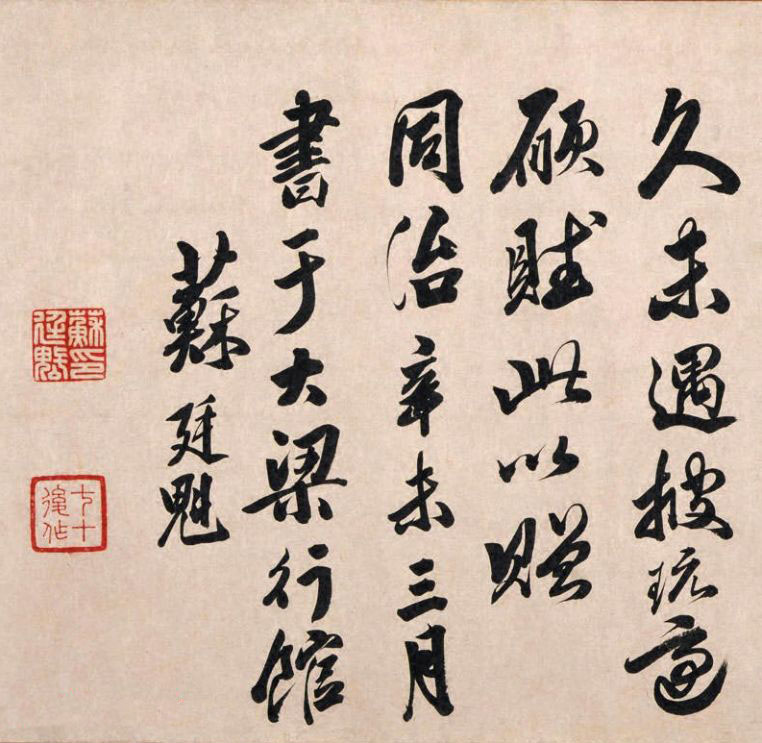 久未遇披玩適
願賦此以贈
同治辛未三月
書于大梁行館
蘇廷魁
蘇印廷魁
七十後作